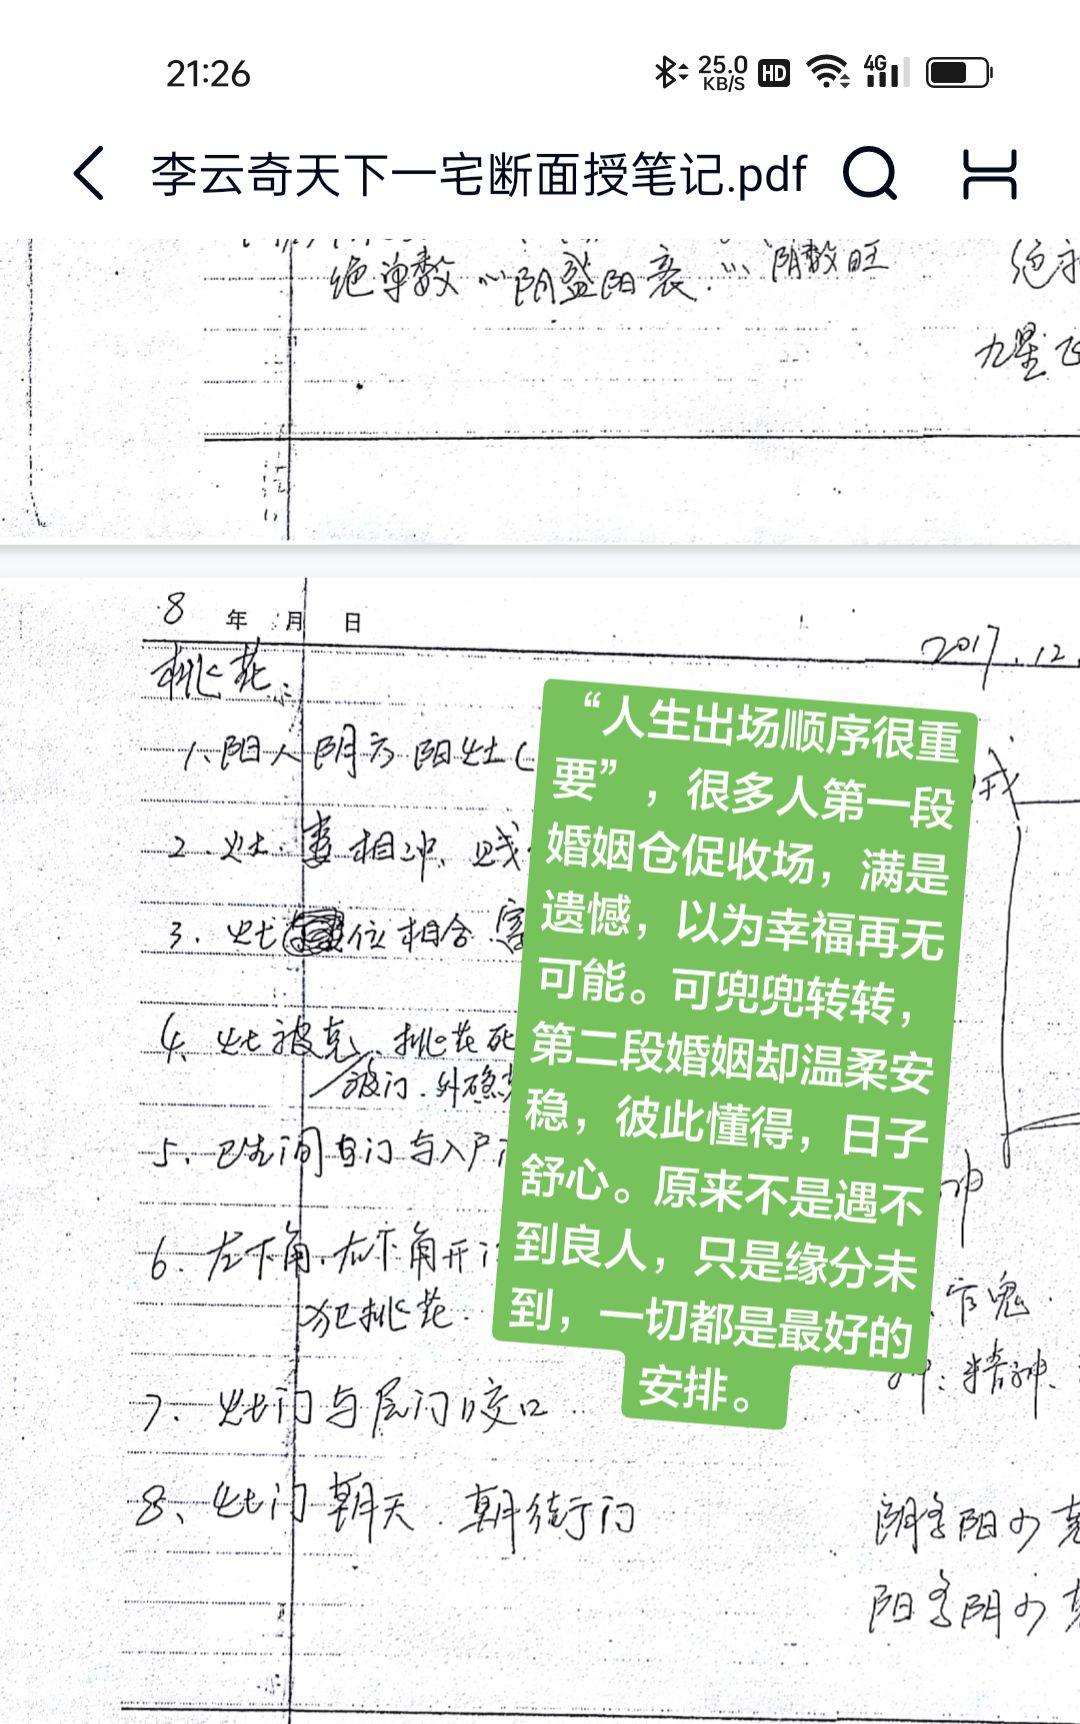 21:26
25.0
KB/S
HD
4G
李云奇天下一宅断面授笔记.pdf
绝单数 ∴阴盛阳衰. ∵阴数旺
九星飞
8 年 月 日
2017.12.
桃花:
1、阳人阴方阳灶(
2. 灶. 相冲、
3. 灶 位相合.
4、灶被克、桃花死
破门.外
5、卫生间 门与入户
6. 左下角、右下角开门
犯桃花.
7. 灶门与 门咬口
8、灶门朝天. 朝街门
官鬼.
神: 精神、
阴多阳少克
阳多阴少
“人生出场顺序很重
要”，很多人第一段
婚姻仓促收场，满是
遗憾，以为幸福再无
可能。可兜兜转转，
第二段婚姻却温柔安
稳，彼此懂得，日子
舒心。原来不是遇不
到良人，只是缘分未
到，一切都是最好的
安排。